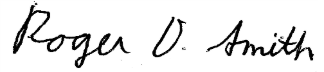 Roger D. Smith